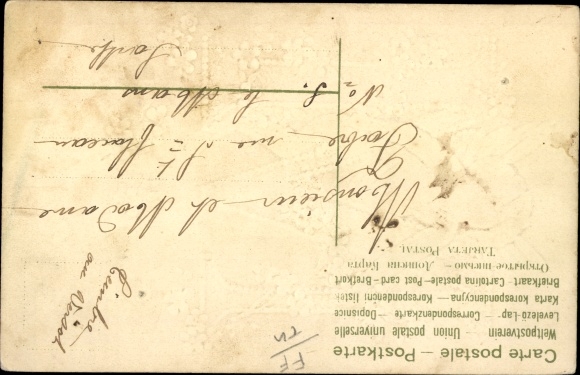 Carte postale – Postkarte
Weltpostverein – Union postale universelle
Levelező-Lap – Correspondenzkarte – Dopisnice
Karta korespondencyjna – Korespondenční lístek
Briefkaart Cartolina postale – Post card – Brefkort
Открытое письмо – Дописна Карта
TARJETA POSTAL
Timbre
au Verso
Monsieur et Madame
rue St
No 8. Le Mans
Sarthe
FF